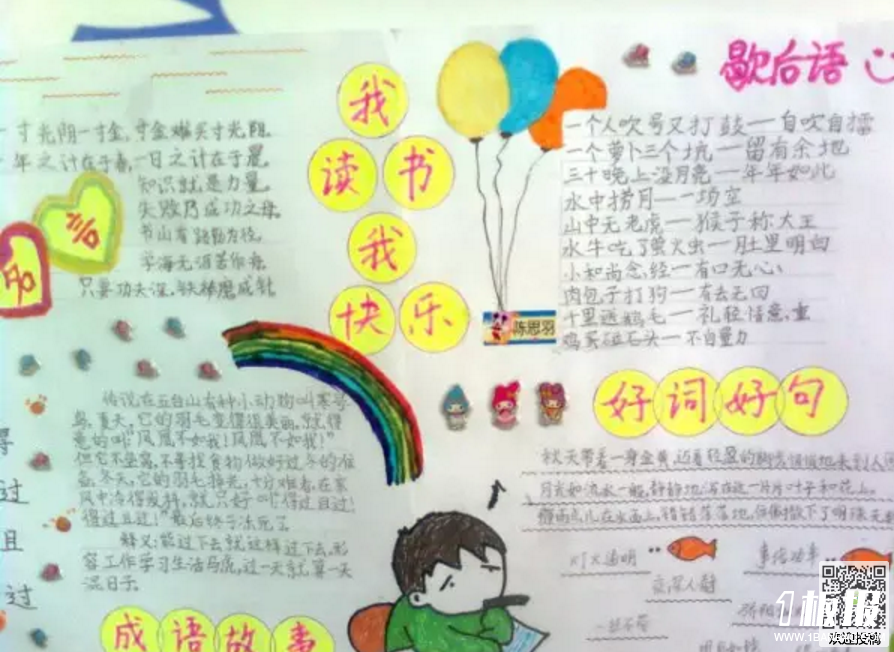 一寸光阴一寸金,寸金难买寸光阴。
年之计在于春,一日之计在于晨。
知识就是力量。
失败乃成功之母。
书山有路勤为径,
学海无涯苦作舟。
只要功夫深,铁棒磨成针
名言
我读书我快乐
陈思羽
歇后语
一个人吹号又打鼓——自吹自擂
一个萝卜三个坑——留有余地
三十晚上没月亮——年年如此
水中捞月——一场空
山中无老虎——猴子称大王
水牛吃了萤火虫——肚里明白
小和尚念经——有口无心
肉包子打狗——有去无回
千里送鹅毛——礼轻情意重
鸡蛋碰石头——不自量力
好词好句
秋天带着一身金黄,迈着轻盈的脚步悄悄地来到人间
月光如流水一般,静静地泻在这一片片叶子和花上。
灯火通明
得过且过
传说在五台山有种小动物叫寒号
鸟,夏天,它的羽毛变得很美丽,就得
意的叫"凤凰不如我!凤凰不如我!"
但它不垒窝,不寻找食物做好过冬的准
备,冬天,它的羽毛掉光,十分难看,在寒
风中冻得发抖,就只好叫"得过且过!
得过且过!"最后终于冻死了
释义:能过下去就这样过下去,形
容工作学习生活马虎,过一天就算一天
混日子。
成语故事
1板报
WWW.1BANBAO.COM
欢迎投稿